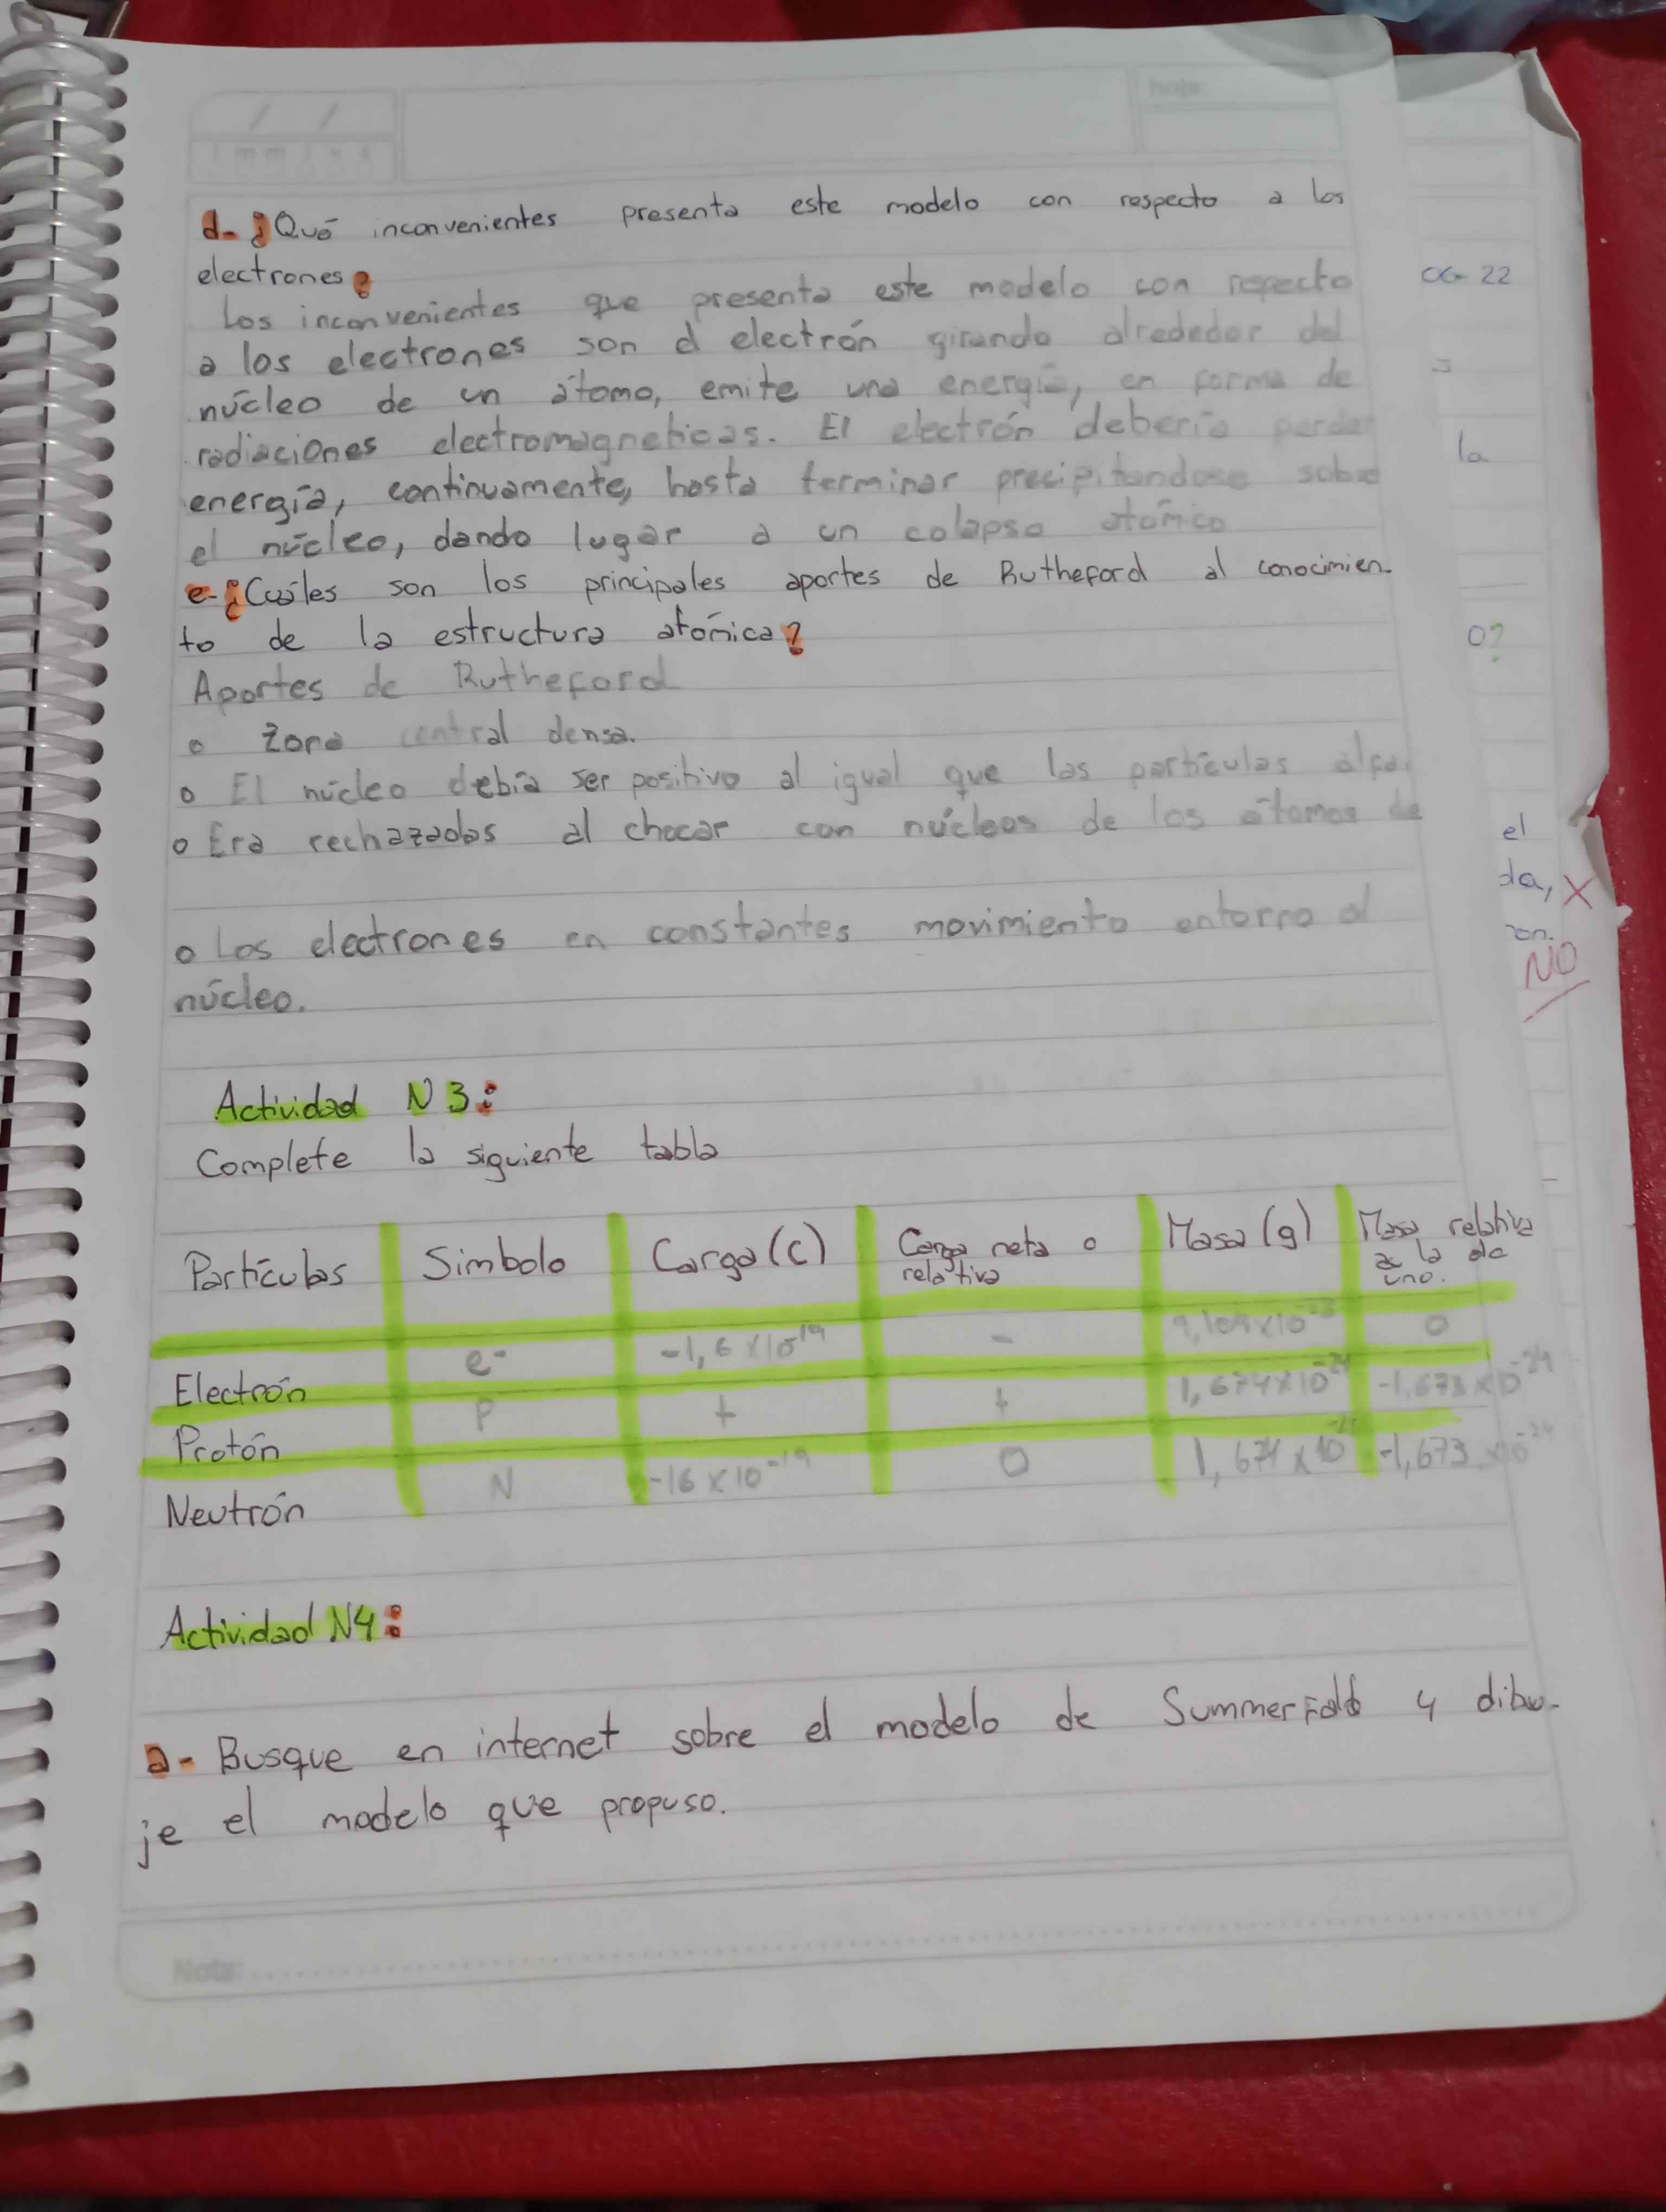 hoja:
d- ¿Qué inconvenientes presenta este modelo con respecto a los
electrones?
Los inconvenientes que presenta este modelo con respecto
a los electrones son el electrón girando alrededor del
núcleo de un átomo, emite una energía, en forma de
radiaciones electromagneticas. El electrón debería perder
energía, continuamente, hasta terminar precipitandose sobre
el núcleo, dando lugar a un colapso atómico
e- ¿Cuáles son los principales aportes de Rutheford al conocimien-
to de la estructura atómica?
Aportes de Rutheford
o Zona central densa.
o El núcleo debía ser positivo al igual que las partículas alfa.
o Era rechazadas al chocar con núcleos de los átomos de
o Los electrones en constantes movimiento entorno al
núcleo.
Actividad N 3:
Complete la siguiente tabla
Partículas Simbolo Carga (C) Carga neta o relativa Masa (g) Masa relativa a la de uno.
Electrón e- -1,6 x10^19 - 9,109x10^-28 0
Protón P + + 1,674x10^-24 -1,673x10^-24
Neutrón N -16 x 10^-19 0 1,674 x 10 -1,673 x10^-24
Actividad N4:
a- Busque en internet sobre el modelo de y dibu-
je el modelo que propuso.
Nota:
22
la
O?
el
da, X
on.
NO